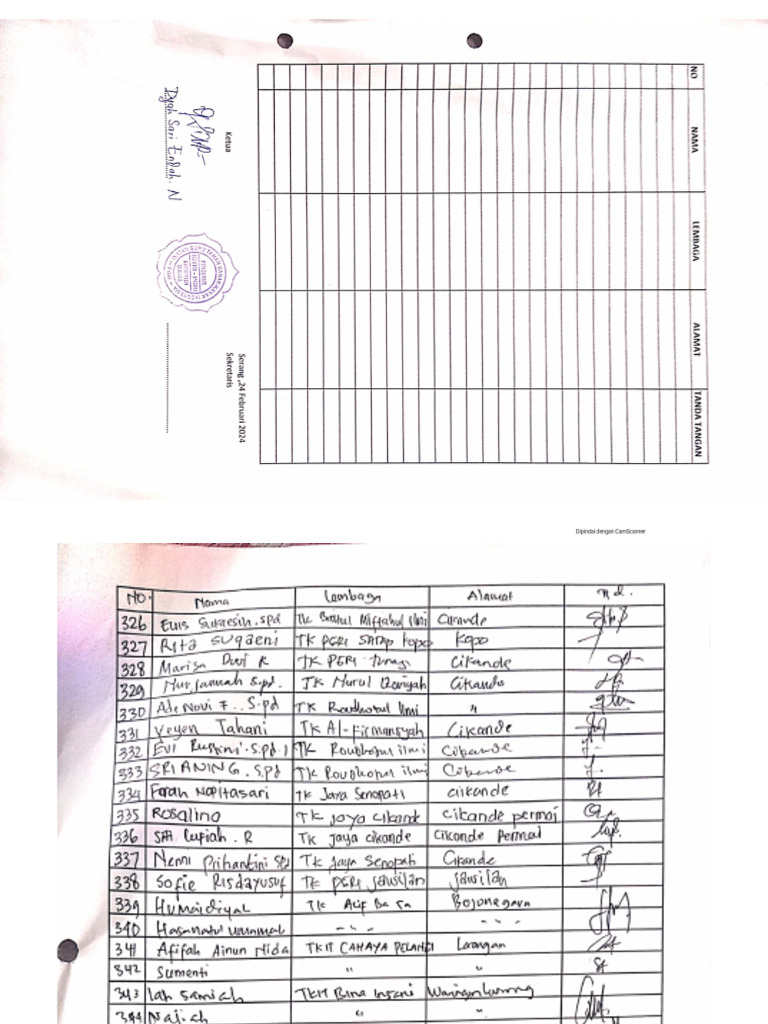 NO NAMA LEMBAGA ALAMAT TANDA TANGAN
Serang ,24 Februari 2024
Ketua Sekretaris
Dyah Sari Endah. N
Dipindai dengan CamScanner
NO. Nama Lembaga Alamat
326 Euis Sukaesih. Spd TK Miftahul Ilmi Carande
327 Rita Suqaeni TK PGRI SATAP Kopo Kopo
328 Marisa Dwi R TK PGRI Cikande
329 Nurjannah S.pd. TK Nurul Cikande
330 Ade Novi F.. S.pd TK Roudhotul Ilmi "
331 Yeyen Tahani TK Al-Firmansyah Cikande
332 EVI S.Pd.I TK Roudhotul ilmi Cikande
333 SRI ANING. S.Pd TK Roudhotul ilmi Cikande
334 Farah Nopitasari TK Jaya Senopati Cikande
335 Rosalina TK jaya cikande cikande permai
336 Siti Lupiah . R TK jaya cikande Cikande Permai
337 Nenni Prihantini Spd TK Jaya Senopati Cikande
338 Sofie Risdayusuf TK PGRI Jawilan Jawilan
339 Humaidiyah TK Alif Ba Ta Bojonegara
340 Hasanatul ummah - " - " - " - "
341 Afifah Ainun Nida TKIT CAHAYA PELANGI Lorongan
342 Sumenti " "
343 Iah Samiah TKIT Bina Insani Waringinkurung
344 Najiah " "